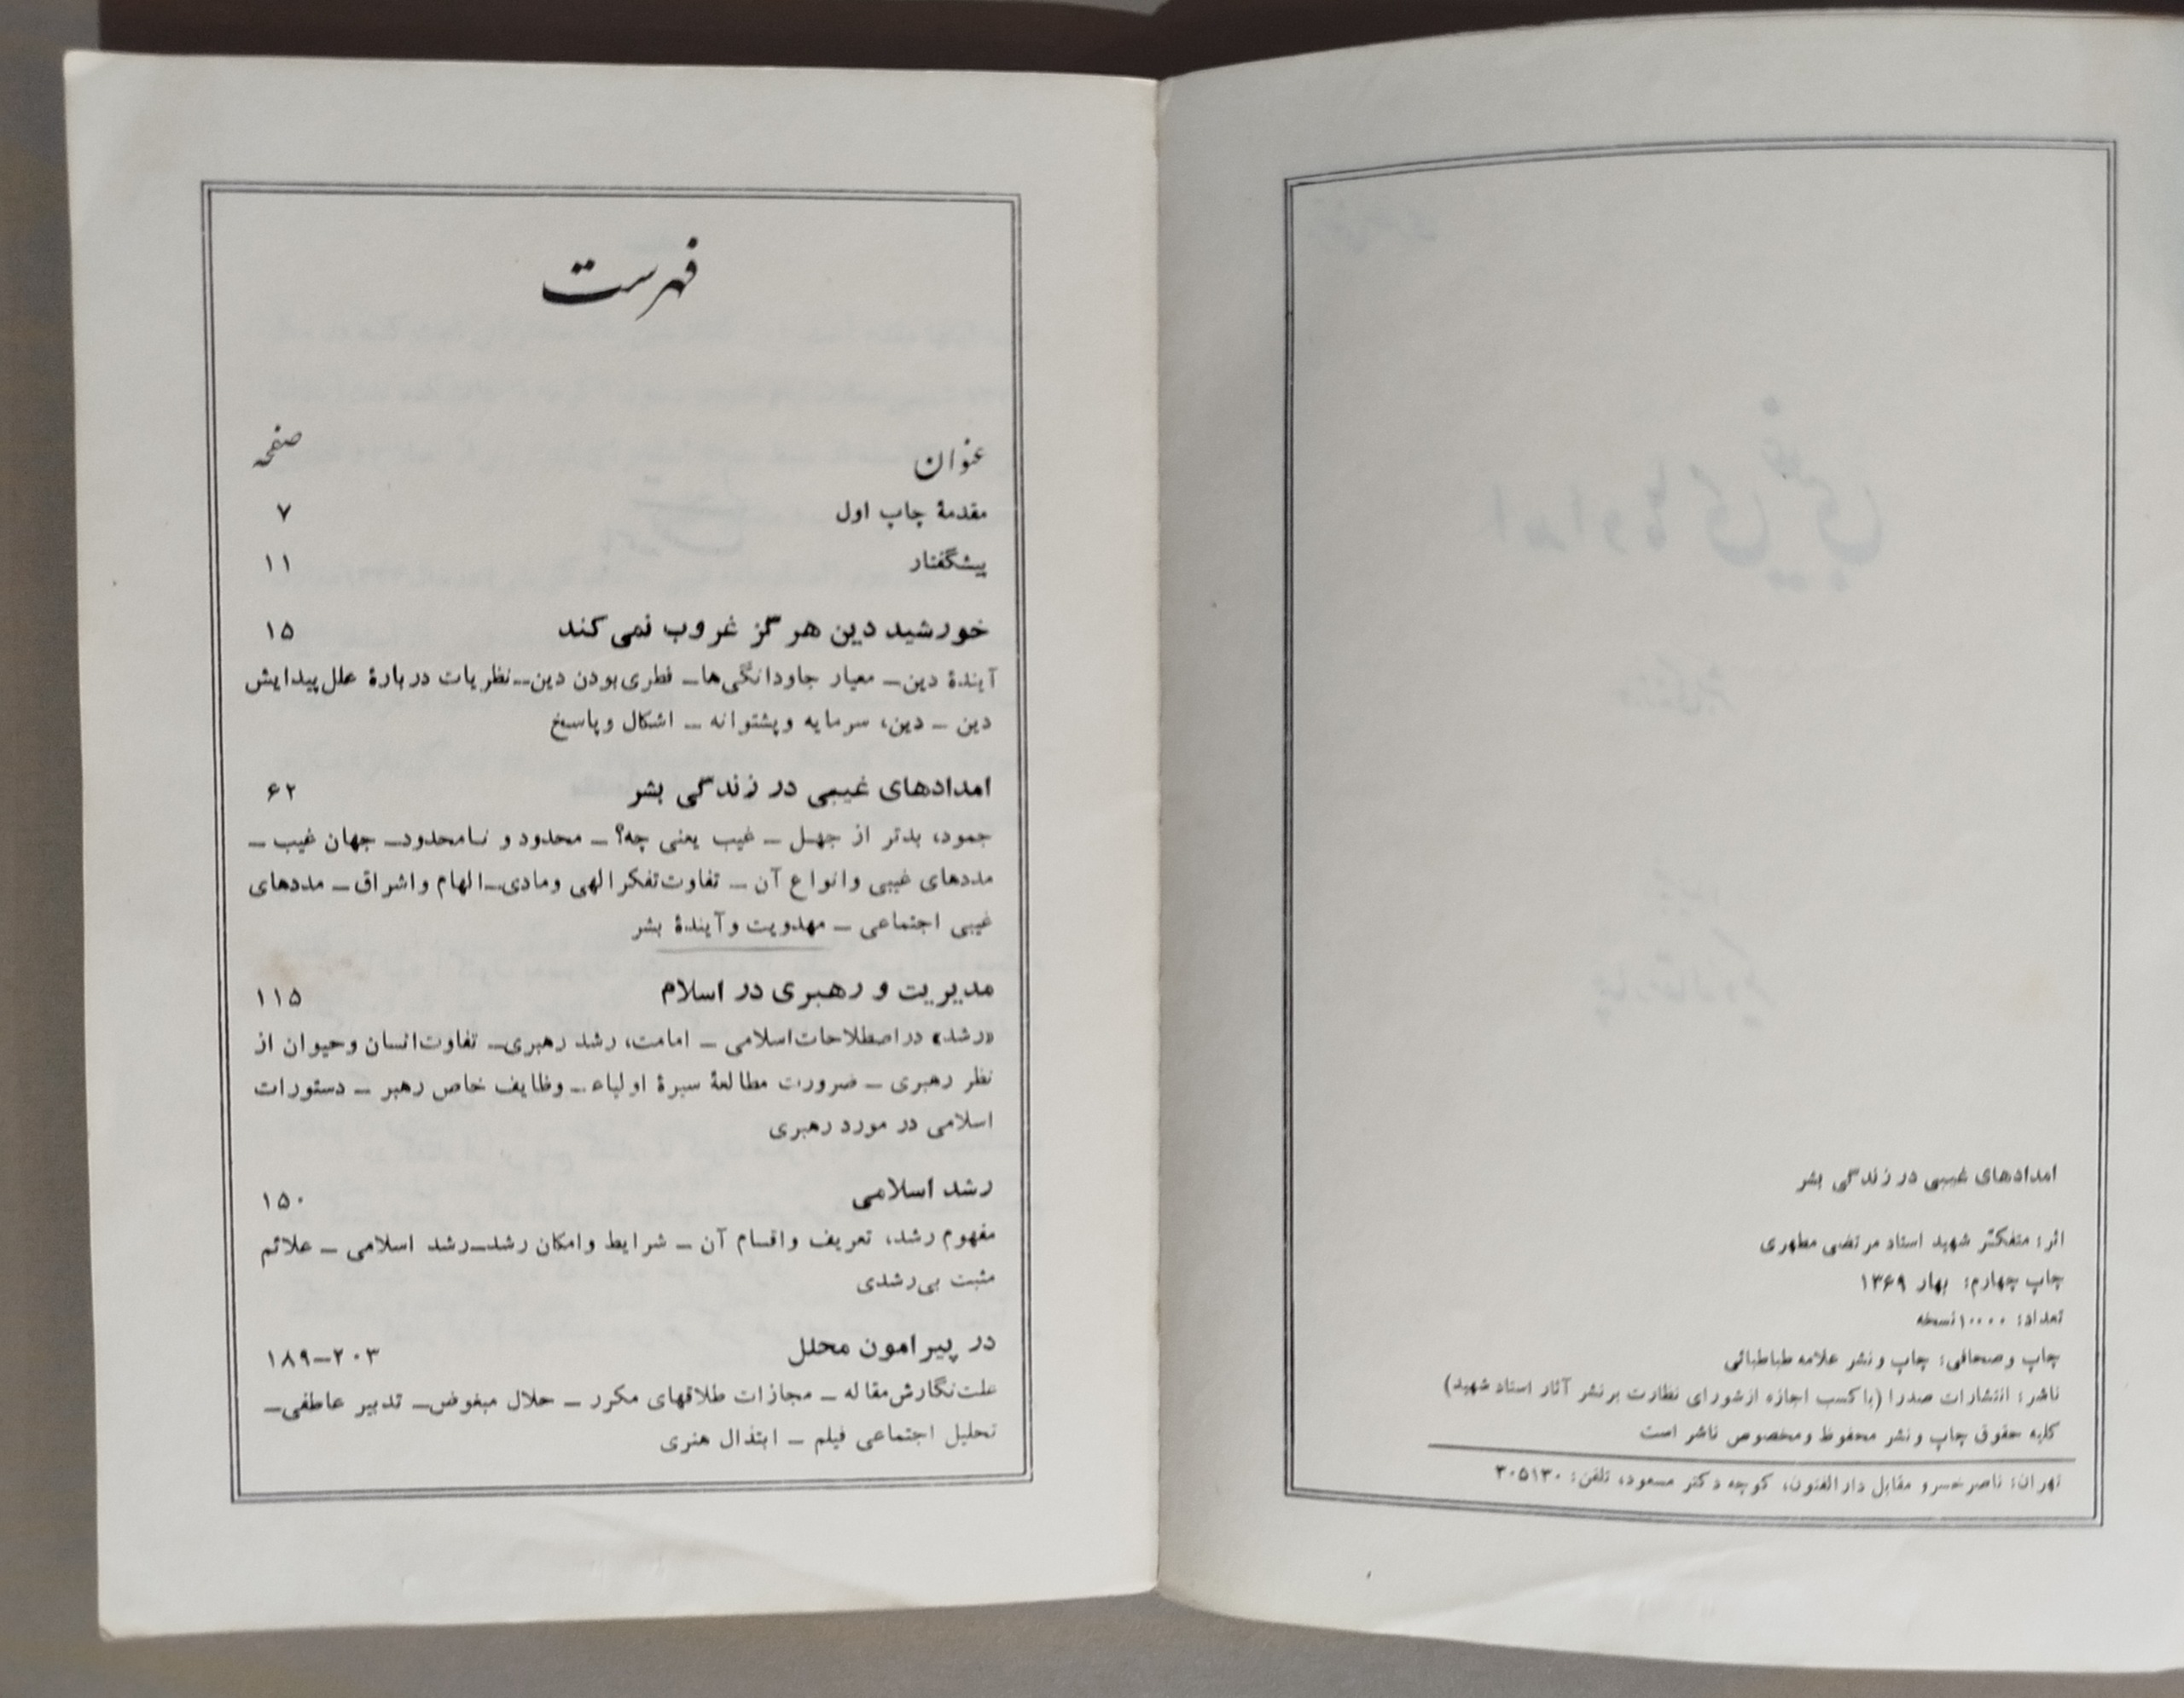 امدادهای غیبی در زندگی بشر
اثر: متفکّر شهید استاد مرتضی مطهری
چاپ چهارم: بهار ۱۳۶۹
تعداد: ۱۰۰۰۰ نسخه
چاپ و صحافی: چاپ و نشر علامه طباطبائی
ناشر: انتشارات صدرا (با کسب اجازه از شورای نظارت بر نشر آثار استاد شهید)
کلیه حقوق چاپ و نشر محفوظ و مخصوص ناشر است
تهران: ناصر خسرو مقابل دارالفنون، کوچه دکتر مسعود، تلفن: ۳۰۵۱۳۰
فهرست
عنوان صفحه
مقدمهٔ چاپ اول ۷
پیشگفتار ۱۱
خورشید دین هرگز غروب نمی کند ۱۵
آیندهٔ دین ــ معیار جاودانگی‌ها ــ فطری بودن دین ــ نظریات دربارهٔ علل پیدایش
دین ــ دین، سرمایه و پشتوانه ــ اشکال و پاسخ
امدادهای غیبی در زندگی بشر ۶۲
جمود، بدتر از جهل ــ غیب یعنی چه؟ ــ محدود و نامحدود ــ جهان غیب ــ
مددهای غیبی و انواع آن ــ تفاوت تفکر الهی و مادی ــ الهام و اشراق ــ مددهای
غیبی اجتماعی ــ مهدویت و آیندهٔ بشر
مدیریت و رهبری در اسلام ۱۱۵
«رشد» در اصطلاحات اسلامی ــ امامت، رشد رهبری ــ تفاوت انسان و حیوان از
نظر رهبری ــ ضرورت مطالعهٔ سیرهٔ اولیاء ــ وظایف خاص رهبر ــ دستورات
اسلامی در مورد رهبری
رشد اسلامی ۱۵۰
مفهوم رشد، تعریف و اقسام آن ــ شرایط و امکان رشد ــ رشد اسلامی ــ علائم
مثبت بی‌رشدی
در پیرامون محلل ۱۸۹ــ۲۰۳
علت نگارش مقاله ــ مجازات طلاقهای مکرر ــ حلال مبغوض ــ تدبیر عاطفی ــ
تحلیل اجتماعی فیلم ــ ابتذال هنری